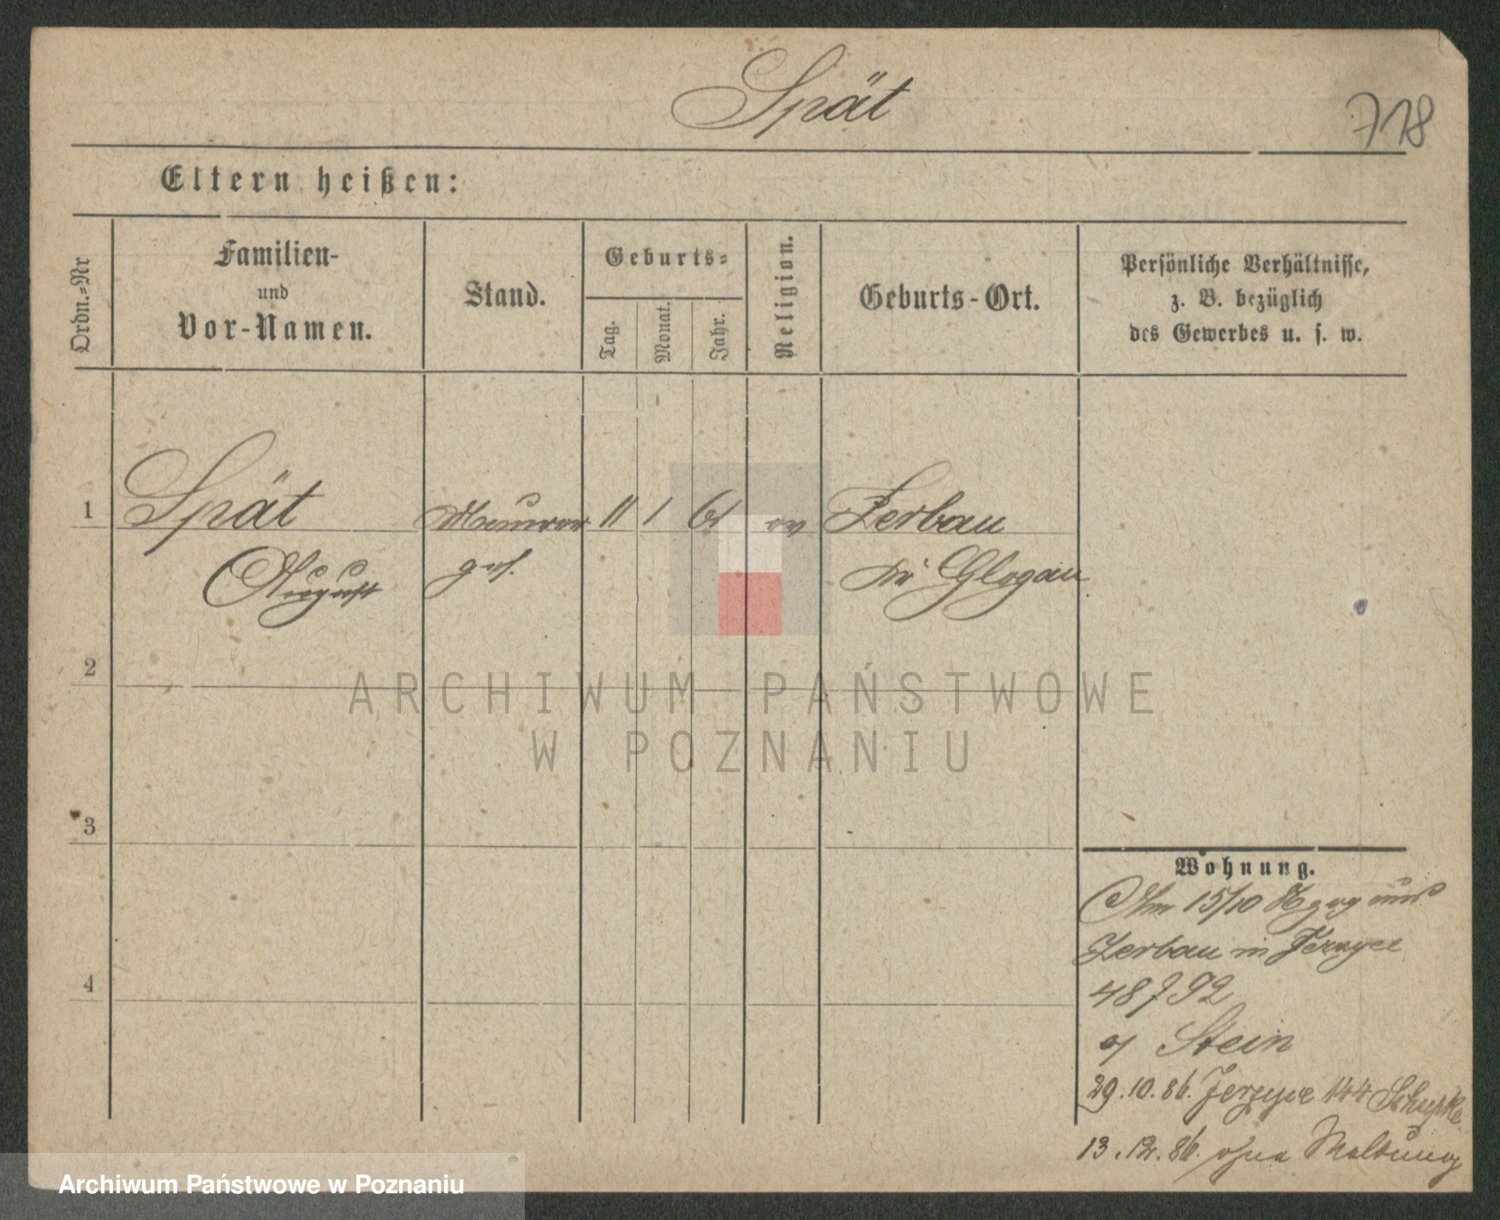 Spät
718
Eltern heißen:
Ordn.-Nr
Familien-
und
Vor-Namen.
Stand.
Geburts-
Tag.
Monat.
Jahr.
Religion.
Geburts-Ort.
Persönliche Verhältnisse,
z. B. bezüglich
des Gewerbes u. s. w.
1 Spät Maurer 11 1 61 ev Zerbau
August ges. Kr Glogau
2
ARCHIWUM PAŃSTWOWE
W POZNANIU
3
4
Wohnung.
Am 15/10 Zgzg aus
Zerbau in Jerzyce
48
Stein
29.10.86. Jerzyce 144
13.12.86. ohne Meldung
Archiwum Państwowe w Poznaniu